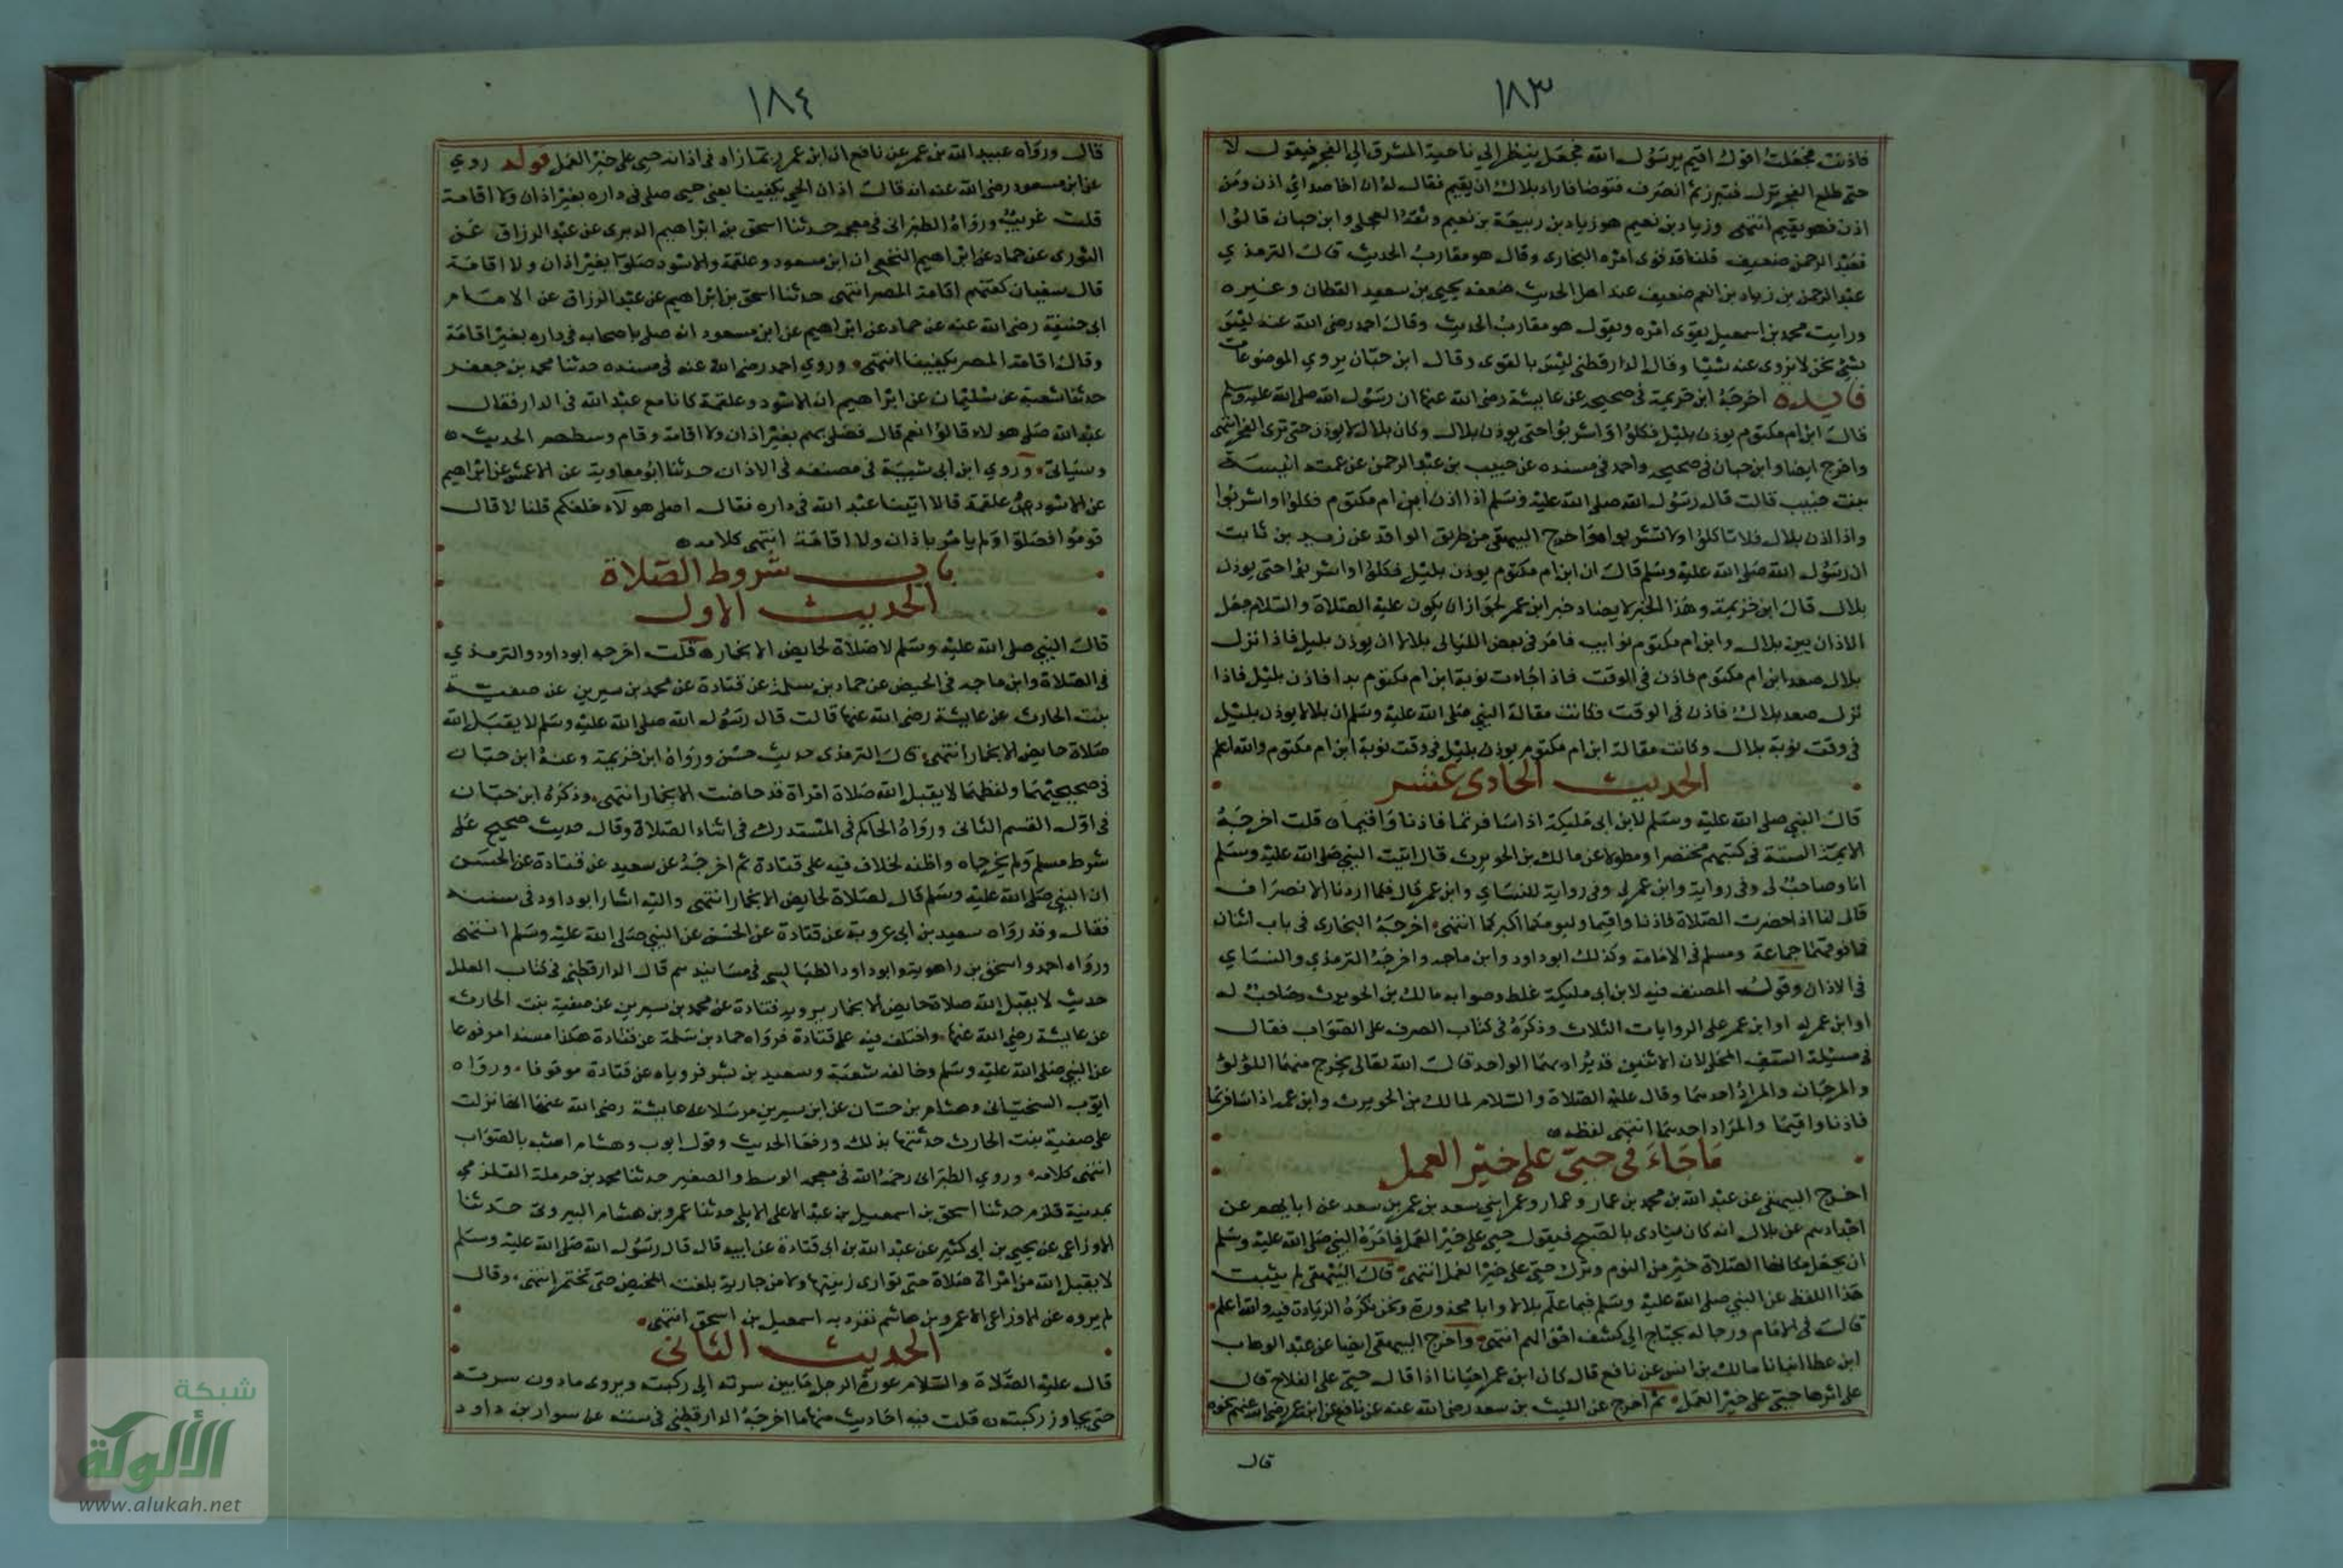 ١٨٣
فاذنت فجعلت اقول اقيم يرسول الله فجعل ينظر الي ناحية المشرق الي الفجر فيقول لا
حتي طلع الفجر نزل فتبرز ثم انصرف فتوضا فاراد بلال ان يقيم فقال له ان اخا صدائي اذن ومن
اذن فهو يقيم انتهى وزياد بن نعيم هو زياد بن ربيعة بن نعيم وثقه العجلي وابن حبان قالوا
فعبد الرحمن ضعيف قلنا قد قوى امره البخارى وقال هو مقارب الحديث قال الترمذي
عبد الرحمن بن زياد بن انعم ضعيف عند اهل الحديث ضعفه يحيى بن سعيد القطان وغيره
ورايت محمد بن اسمعيل يقوى امره ويقول هو مقارب الحديث وقال احمد رضى الله عنه ليس
بشئ نحن لا نروى عنه شيا وقال الدارقطني ليس بالقوى وقال ابن حبان يروي الموضوعات
فايده اخرجه ابن خزيمة في صحيحه عن عايشة رضى الله عنها ان رسول الله صلى الله عليه وسلم
قال ابن ام مكتوم يوذن بليل فكلوا واشربوا حتى يوذن بلال وكان بلال لا يوذن حتى ترى الفجر انتهى
واخرج ايضا وابن حبان في صحيحه واحمد في مسنده عن حبيب بن عبد الرحمن عن عمته انيسة
بنت حبيب قالت قال رسول الله صلى الله عليه وسلم اذا اذن ابن ام مكتوم فكلوا واشربوا
واذا اذن بلال فلا تاكلوا ولا تشربوا واخرج البيهقى من طريق الواقد عن زيد بن ثابت
ان رسول الله صلى الله عليه وسلم قال ان ابن ام مكتوم يوذن بليل فكلوا واشربوا حتى يوذن
بلال قال ابن خزيمة وهذا الخبر لا يضاد خبر ابن عمر لجواز ان يكون عليه الصلاة والسلام جعل
الاذان بين بلال وابن ام مكتوم نوايب فامر في بعض الليالى بلالا ان يوذن بليل فاذا نزل
بلال صعد ابن ام مكتوم فاذن في الوقت فاذا جاءت نوبة ابن ام مكتوم بدا فاذن بليل فاذا
نزل صعد بلال فاذن في الوقت فكانت مقالة النبي صلى الله عليه وسلم ان بلالا يوذن بليل
في وقت نوبة بلال وكانت مقالة ابن ام مكتوم يوذن بليل في وقت نوبة ابن ام مكتوم والله اعلم
الحديث الحادى عشر
قال النبي صلى الله عليه وسلم لابن ابى مليكة اذا سافرتما فاذنا واقيما قلت اخرجه
الايمة الستة في كتبهم مختصرا ومطولا عن مالك بن الحويرث قال اتيت النبي صلى الله عليه وسلم
انا وصاحب لى وفي رواية وابن عم لى وفي رواية للنساي وابن عمر قال فلما اردنا الانصراف
قال لنا اذا حضرت الصلاة فاذنا واقيما وليومكما اكبركما انتهى اخرجه البخارى في باب اثنان
فما فوقهما جماعة ومسلم في الامامة وكذلك ابو داود وابن ماجه واخرجه الترمذي والنساي
في الاذان وقول المصنف فيه لابن ابى مليكة غلط وصوابه مالك بن الحويرث وصاحب له
او ابن عم له او ابن عمر على الروايات الثلاث وذكره في كتاب الصرف على الصواب فقال
في مسئلة السيف المحلى لان الاثنين قد يراد بهما الواحد قال الله تعالى يخرج منهما اللؤلؤ
والمرجان والمراد احدهما وقال عليه الصلاة والسلام لمالك بن الحويرث وابن عمه اذا سافرتما
فاذنا واقيما والمراد احدهما انتهى لفظه
ما جاء في حي على خير العمل
اخرج البيهقى عن عبد الله بن محمد بن عمار وعمار وعمر ابني سعد بن عمر بن سعد عن ابايهم عن
اجدادهم عن بلال انه كان ينادى بالصبح فيقول حي على خير العمل فامره النبي صلى الله عليه وسلم
ان يجعل مكانها الصلاة خير من النوم وترك حي على خير العمل انتهى قال البيهقى لم يثبت
هذا اللفظ عن النبي صلى الله عليه وسلم فيما علم بلالا وابا محذورة ونحن نكره الزيادة فيه والله اعلم
قال في الامام ورجاله يحتاج الي كشف احوالهم انتهى واخرج البيهقى ايضا عن عبد الوهاب
ابن عطا انبانا مالك بن انس عن نافع قال كان ابن عمر احيانا اذا قال حي على الفلاح قال
على اثرها حي على خير العمل ثم اخرج عن الليث بن سعد رضى الله عنه عن نافع عن ابن عمر رضى الله عنهم نحوه
قال
١٨٤
قال ورواه عبيد الله بن عمر عن نافع ان ابن عمر ربما زاد في اذانه حي على خير العمل قوله روي
عن ابن مسعود رضى الله عنه انه قال اذان الحي يكفينا يعني حين صلى في داره بغير اذان ولا اقامة
قلت غريب ورواه الطبرانى في معجمه حدثنا اسحق بن ابراهيم الدبرى عن عبد الرزاق عن
الثورى عن حماد عن ابراهيم النخعي ان ابن مسعود وعلقمة والاسود صلوا بغير اذان ولا اقامة
قال سفيان كفتهم اقامة المصر انتهى حدثنا اسحق بن ابراهيم عن عبد الرزاق عن الامام
ابى حنيفة رضى الله عنه عن حماد عن ابراهيم عن ابن مسعود انه صلى باصحابه في داره بغير اقامة
وقال اقامة المصر يكفينا انتهى وروي احمد رضى الله عنه في مسنده حدثنا محمد بن جعفر
حدثنا شعبة عن سليمان عن ابراهيم ان الاسود وعلقمة كانا مع عبد الله في الدار فقال
عبد الله صلى هولاء قالوا نعم قال فصلى بهم بغير اذان ولا اقامة وقام وسطهم الحديث
وسياتى وروي ابن ابى شيبة في مصنفه في الاذان حدثنا ابو معاوية عن الاعمش عن ابراهيم
عن الاسود وعلقمة قالا اتينا عبد الله في داره فقال اصلى هولاء خلفكم قلنا لا قال
قوموا فصلوا ولم يامر باذان ولا اقامة انتهى كلامه
باب شروط الصلاة
الحديث الاول
قال النبي صلى الله عليه وسلم لا صلاة لحايض الا بخمار قلت اخرجه ابو داود والترمذي
في الصلاة وابن ماجه في الحيض عن حماد بن سلمة عن قتادة عن محمد بن سيرين عن صفية
بنت الحارث عن عايشة رضى الله عنها قالت قال رسول الله صلى الله عليه وسلم لا يقبل الله
صلاة حايض الا بخمار انتهى قال الترمذى حديث حسن ورواه ابن خزيمة وعنه ابن حبان
في صحيحيهما ولفظهما لا يقبل الله صلاة امراة قد حاضت الا بخمار انتهى وذكره ابن حبان
في اول القسم الثانى ورواه الحاكم في المستدرك في اثناء الصلاة وقال حديث صحيح على
شرط مسلم ولم يخرجاه واظنه لخلاف فيه على قتادة ثم اخرجه عن سعيد عن قتادة عن الحسن
ان النبي صلى الله عليه وسلم قال لا صلاة لحايض الا بخمار انتهى واليه اشار ابو داود في سننه
فقال وقد رواه سعيد بن ابى عروبة عن قتادة عن الحسن عن النبي صلى الله عليه وسلم انتهى
ورواه احمد واسحق بن راهويه وابو داود الطيالسى في مسانيدهم قال الدارقطنى في كتاب العلل
حديث لا يقبل الله صلاة حايض الا بخمار يرويه قتادة عن محمد بن سيرين عن صفية بنت الحارث
عن عايشة رضى الله عنها واختلف فيه على قتادة فرواه حماد بن سلمة عن قتادة هكذا مسندا مرفوعا
عن النبي صلى الله عليه وسلم وخالفه شعبة وسعيد بن بشر فروياه عن قتادة موقوفا ورواه
ايوب السختيانى وهشام بن حسان عن ابن سيرين مرسلا على عايشة رضى الله عنها انها نزلت
على صفية بنت الحارث حدثتها بذلك ورفعا الحديث وقول ايوب وهشام اشبه بالصواب
انتهى كلامه وروي الطبرانى رحمه الله في معجمه الوسط والصغير حدثنا محمد بن حرملة القلزمي
بمدينة قلزم حدثنا اسحق بن اسمعيل بن عبد الاعلى الايلى حدثنا عمرو بن هشام البيروتى حدثنا
الاوزاعى عن يحيى بن ابى كثير عن عبد الله بن ابى قتادة عن ابيه قال قال رسول الله صلى الله عليه وسلم
لا يقبل الله من امراة صلاة حتى توارى زينتها ولا من جارية بلغت المحيض حتى تختمر انتهى وقال
لم يروه عن الاوزاعى الا عمرو بن هاشم تفرد به اسمعيل بن اسحق انتهى
الحديث الثانى
قال عليه الصلاة والسلام عورة الرجل ما بين سرته الى ركبته ويروى مادون سرته
حتى يجاوز ركبتيه قلت فيه احاديث منها ما اخرجه الدارقطنى في سننه عن سوار بن داود
شبكة
الألوكة
www.alukah.net